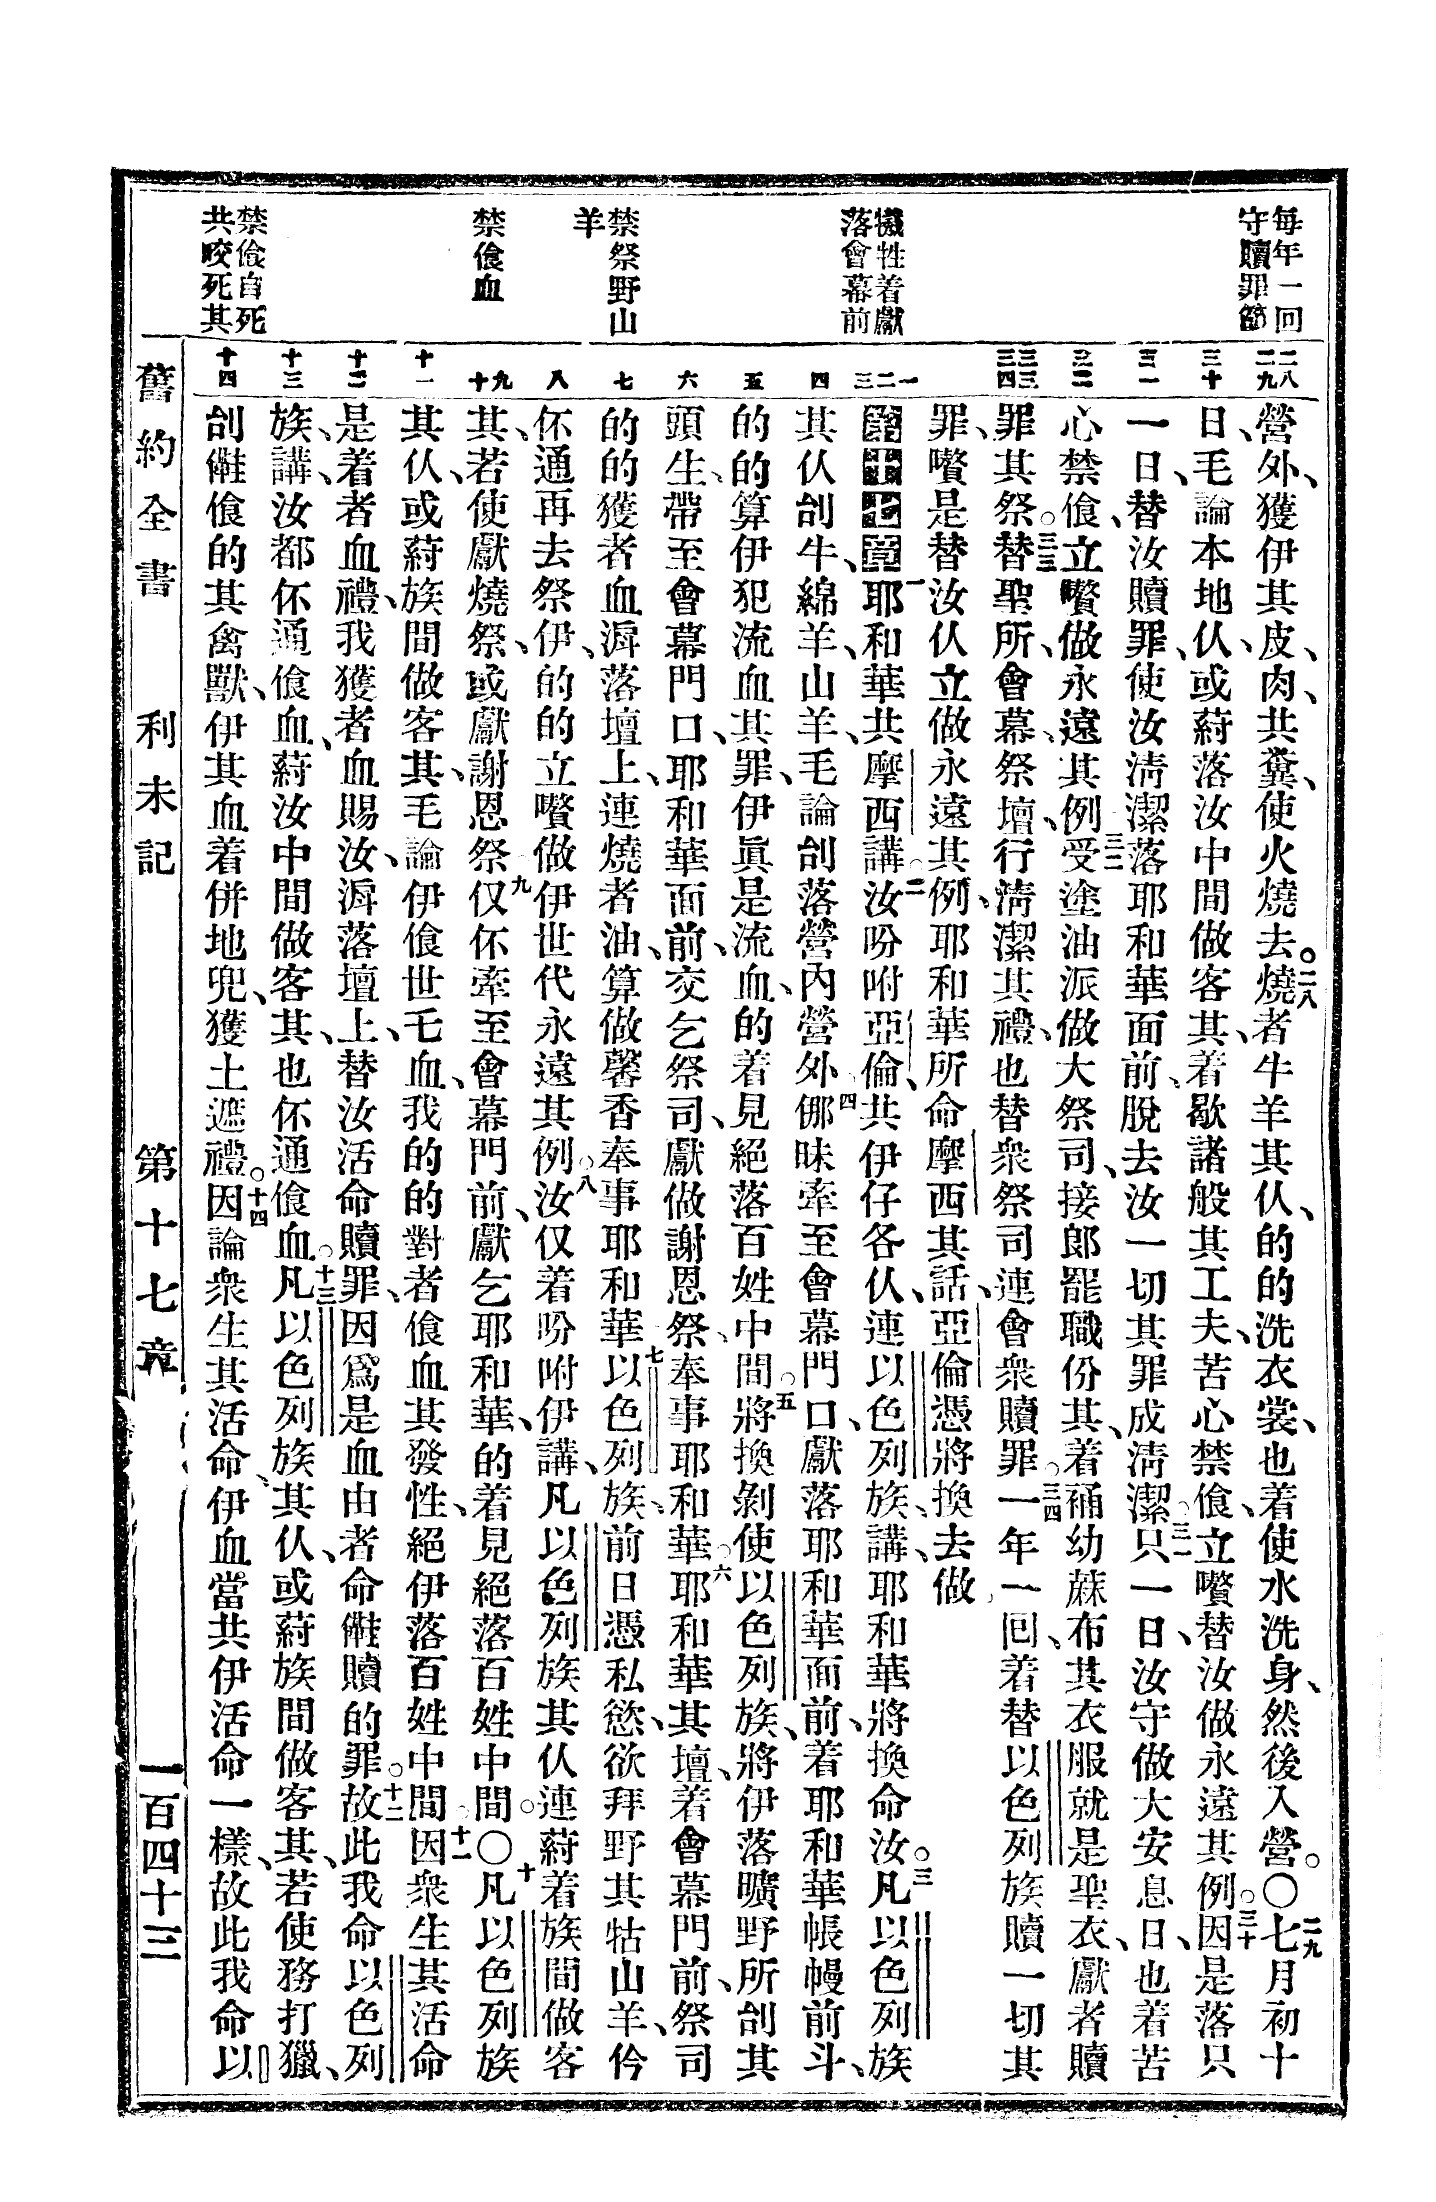 每年一回
守贖罪節
犧牲着獻
落會幕前
禁祭野山
羊
禁偹血
禁偹自死
共咬死其
二八 二九 三十 三一 三二 三三 三四 一 二 三 四 五 六 七 八 九 十 十一 十二 十三 十四
營外、獲伊其皮、肉、共糞、使火燒去。二八燒者牛羊其仈、的的洗衣裳、也着使水洗身、然後入營。○二九七月初十
日、毛論本地仈、或蔚落汝中間做客其、着歇諸般其工夫、苦心禁偹、立嚽替汝做永遠其例。三十因是落只
一日、替汝贖罪、使汝淸潔落耶和華面前、脫去汝一切其罪成淸潔。三一只一日、汝守做大安息日、也着苦
心禁偹、立嚽做永遠其例。三二受塗油派做大祭司、接郎罷職份其、着䄻幼蔴布其衣服就是聖衣、獻者贖
罪其祭。三三替聖所、會幕、祭壇、行淸潔其禮、也替衆祭司連會衆贖罪。三四一年一囘、着替以色列族贖一切其
罪、嚽是替汝仈立做永遠其例、耶和華所命摩西其話、亞倫憑將換去做、
第十七章一耶和華共摩西講。二汝吩咐亞倫、共伊仔各仈、連以色列族、講、耶和華將換命汝。三凡以色列族
其仈刣牛、綿羊、山羊、毛論刣落營內營外、四倻昧牽至會幕門口、獻落耶和華面前、着耶和華帳幔前斗、
的的算伊犯流血其罪、伊眞是流血、的着見絕落百姓中間。五將換剝使以色列族、將伊落曠野所刣其
頭生、帶至會幕門口、耶和華面前、交乞祭司、獻做謝恩祭、奉事耶和華。六耶和華其壇、着會幕門前、祭司
的的獲者血㵍落壇上、連燒者油、算做馨香奉事耶和華。七以色列族、前日憑私慾、欲拜野其牯山羊、伶
伓通再去祭伊、的的立嚽做伊世代永遠其例。八汝仅着吩咐伊講、凡以色列族其仈、連蔚着族間做客
其、若使獻燒祭、或獻謝恩祭、九仅伓牽至會幕門前、獻乞耶和華、的着見絕落百姓中間。○十凡以色列族
其仈、或蔚族間做客其、毛論伊偹世乇血、我的的對者偹血其發性、絕伊落百姓中間。十一因衆生其活命
是着者血禮、我獲者血賜汝、㵍落壇上、替汝活命贖罪、因爲是血由者命𠆧贖的罪。十二故此我命以色列
族、講、汝都伓通偹血、蔚汝中間做客其、也伓通偹血。十三凡以色列族其仈、或蔚族間做客其、若使務打獵、
刣𠆧偹的其禽獸、伊其血着倂地兜、獲土遮禮。十四因論衆生其活命、伊血當共伊活命一樣、故此我命以
舊約全書 利未記 第十七章 一百四十三